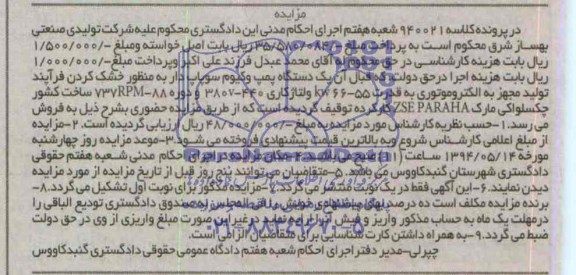 مزایده
در پرونده کلاسه ۹۴۰۰۲۱ شعبه هفتم اجرای احکام مدنی این دادگستری محکوم علیه شرکت تولیدی صنعتی
بهساز شرق محکوم است به پرداخت مبلغ ریال بابت اصل خواسته و مبلغ ۱/۵۰۰/۰۰۰/-
ریال بابت هزینه کارشناسی در حق محکوم له آقای محمد عبدل فرزند علی اکبر و پرداخت مبلغ ۱/۰۰۰/۰۰۰/-
ریال بابت هزینه اجرا درحق دولت در قبال آن یک دستگاه پمپ وکیوم سوپاپ دار به منظور خشک کردن فرآیند
تولید مجهز به الکتروموتوری به قدرت kw ۶۶-۵۵ ولتاژ کاری ۴۴۰-۳۸۰V و دوره ۸۸-۷۳۷RPM ساخت کشور
چکسلواکی مارک ZSE PARAHA کارکرده توقیف گردیده است که از طریق مزایده حضوری بشرح ذیل به فروش
می رسد.۱-حسب نظریه کارشناس مورد مزایده به مبلغ ۴۸/۰۰۰/۰۰۰/- ریال ارزیابی گردیده است.۲-مزایده
از مبلغ اعلامی کارشناس شروع و به بالاترین قیمت پیشنهادی فروخته می شود.۳-موعد مزایده روز چهارشنبه
مورخه ۱۳۹۴/۰۵/۱۴ ساعت (۱۱) صبح می باشد.۴-مکان مزایده در اجرای احکام مدنی شعبه هفتم حقوقی
دادگستری شهرستان گنبدکاووس می باشد.۵-متقاضیان می توانند پنج روز قبل از تاریخ مزایده از مورد مزایده
دیدن نمایند.۶-این آگهی فقط در یک نوبت منتشر می گردد.۷-مزایده مذکور برای نوبت اول تشکیل می گردد.۸-
برنده مزایده مکلف است ده درصد بهای پیشنهادی خویش را فی المجلس به صندوق دادگستری تودیع الباقی را
درمهلت یک ماه به حساب مذکور واریز و فیش آنرا ارایه نماید درغیر این صورت مبلغ واریزی از وی در حق دولت
ضبط می گردد.۹-به همراه داشتن کارت شناسایی برای متقاضیان الزامی است.
چپرلی-مدیر دفتر اجرای احکام شعبه هفتم دادگاه عمومی حقوقی دادگستری گنبدکاووس